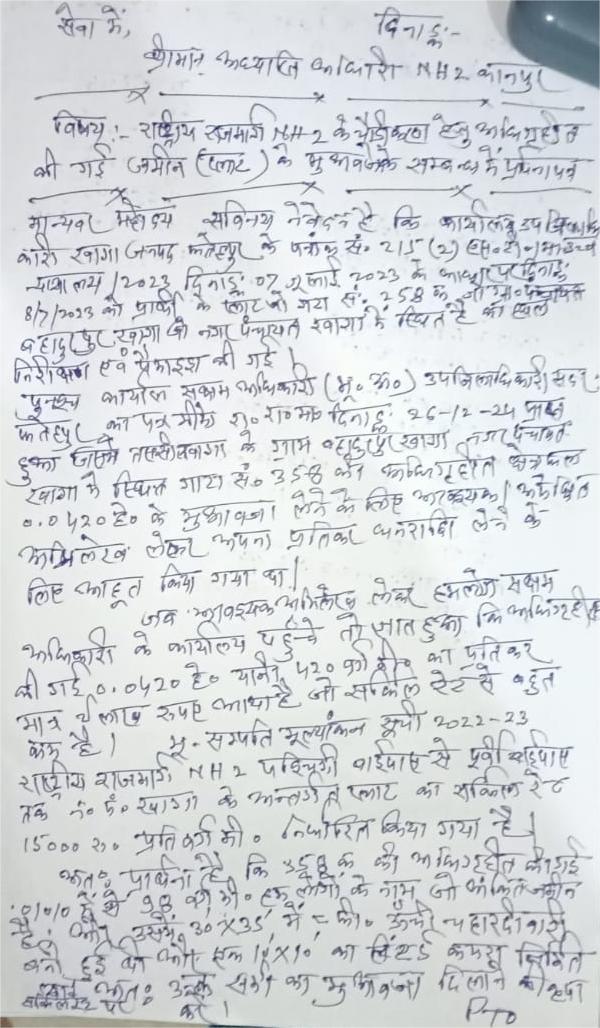 सेवा में, दिनाङ्क:-
श्रीमान् अध्याप्ति अधिकारी NH2 कानपुर
विषय:- राष्ट्रीय राजमार्ग NH-2 के चौड़ीकरण हेतु अधिगृहीत
की गई जमीन (प्लाट) के मुआवजेके सम्बन्ध में प्रार्थनापत्र
मान्यवर महोदय सविनय निवेदन है कि कार्यालय उपजिलाधि
कारी खागा जनपद फतेहपुर के पत्रांक सं० 215 (2)
न्यायालय / 2023 दिनाङ्क 07 जुलाई 2023 के आधार पर दिनाङ्क
8/7/2023 को प्रार्थी के प्लाट की गाटा सं० 258 क जो
बहादुरपुर खागा जो नगर पंचायत खागा में स्थित है का स्थल
निरीक्षण एवं पैमाइश की गई।
पुनश्च कार्यालय सक्षम अधिकारी (भू० अ०) उपजिलाधिकारी सदर
फतेहपुर का पत्र दिनाङ्क 26-12-24 प्राप्त
हुआ जिसमें तहसील खागा के ग्राम बहादुरपुर खागा नगर पंचायत
खागा में स्थित गाटा सं० 358 की अधिगृहीत क्षेत्रफल
0.0420 हे० के मुआवजा लेने के लिए आवश्यक / अपेक्षित
अभिलेख लेकर अपना प्रतिकर धनराशि लेने के
लिए आहूत किया गया था।
जब आवश्यक अभिलेख लेकर हमलोग सक्षम
अधिकारी के कार्यालय पहुँचे तो ज्ञात हुआ कि अधिगृहीत
की गई 0.0420 हे० यानि 420 वर्ग मी० का प्रतिकर
मात्र लाख रुपए आया है जो सर्किल रेट से बहुत
कम है। भू-सम्पत्ति मूल्यांकन सूची 2022-23
राष्ट्रीय राजमार्ग NH2 पश्चिमी बाईपास से पूर्वी बाईपास
तक न० पं० खागा के अन्तर्गत प्लाट का सर्किल रेट
15000 रु० प्रति वर्ग मी० निर्धारित किया गया है।
अतः प्रार्थना है कि 358 क की अधिगृहीत की गई
से 98 वर्ग मी० हम लोगों के नाम जो अंकित जमीन
है। और उसमें 30x35 में की० ऊँची चहारदीवारी
बनी हुई थी और एक का कमरा निर्मित
अतः उक्त सभी का मुआवजा दिलाने की कृपा
सर्किल रेट पर करें।
PTO